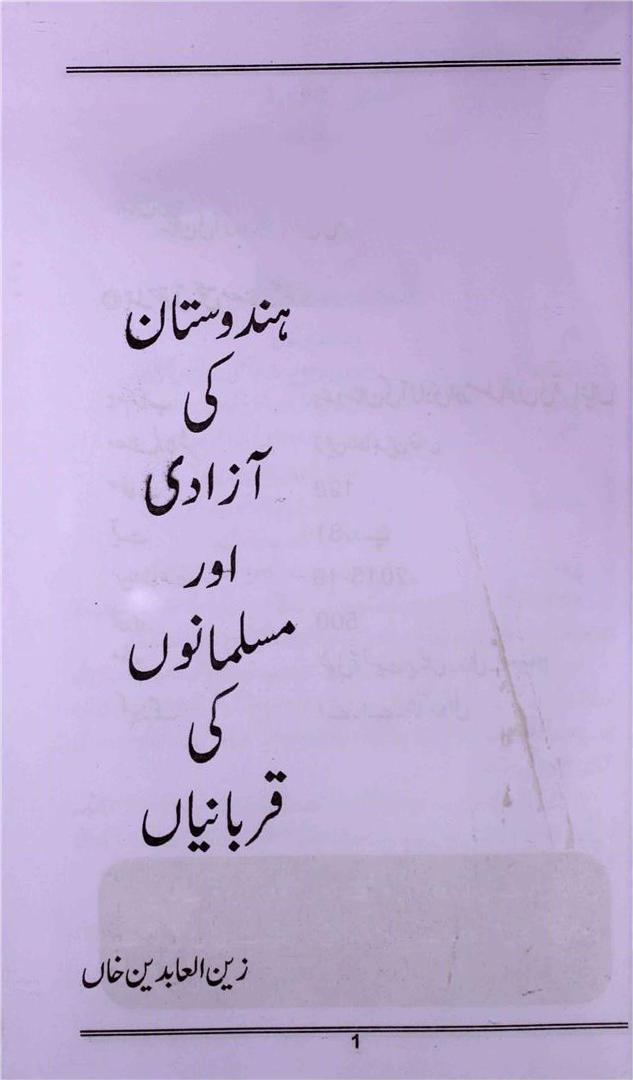 ہندوستان
کی
آزادی
اور
مسلمانوں
کی
قربانیاں
زین العابدین خاں
1